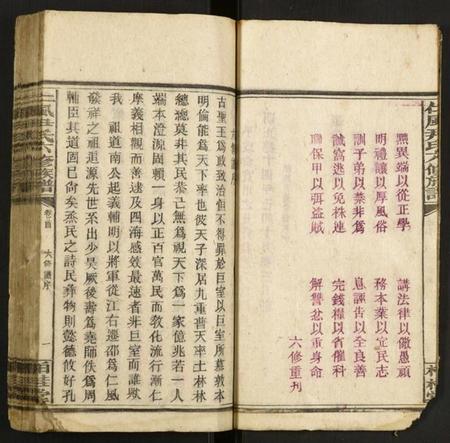 仁風尹氏六修族譜
黜異端以從正學
講法律以儆愚頑
明禮讓以厚風俗
務本業以定民志
訓子弟以禁非為
息誣告以全良善
誡窩逃以免株連
完錢糧以省催科
聯保甲以弭盜賊
解讐忿以重身命
六修重刊
六修譜序
古聖王為政致治但不得罪於巨室以巨室所慕教本
明倫能為天下率也彼天子深居九重普天率土林林
總總莫非其民恭己無為視天下為一家億兆若一人
端本澄源周賴一身以正百官萬民而教化流行漸仁
摩義相觀而善逮及四海感效最速者非巨室而誰歟
我 祖道南公起義輔明以將軍從江右遷邵為仁風
發祥之祖追源先世系出少昊厥後壽為堯師佚為周
輔臣其道固已尙矣烝民之詩民彝物則懿德攸好孔
仁風尹氏六修族譜
卷首
六修譜序
一